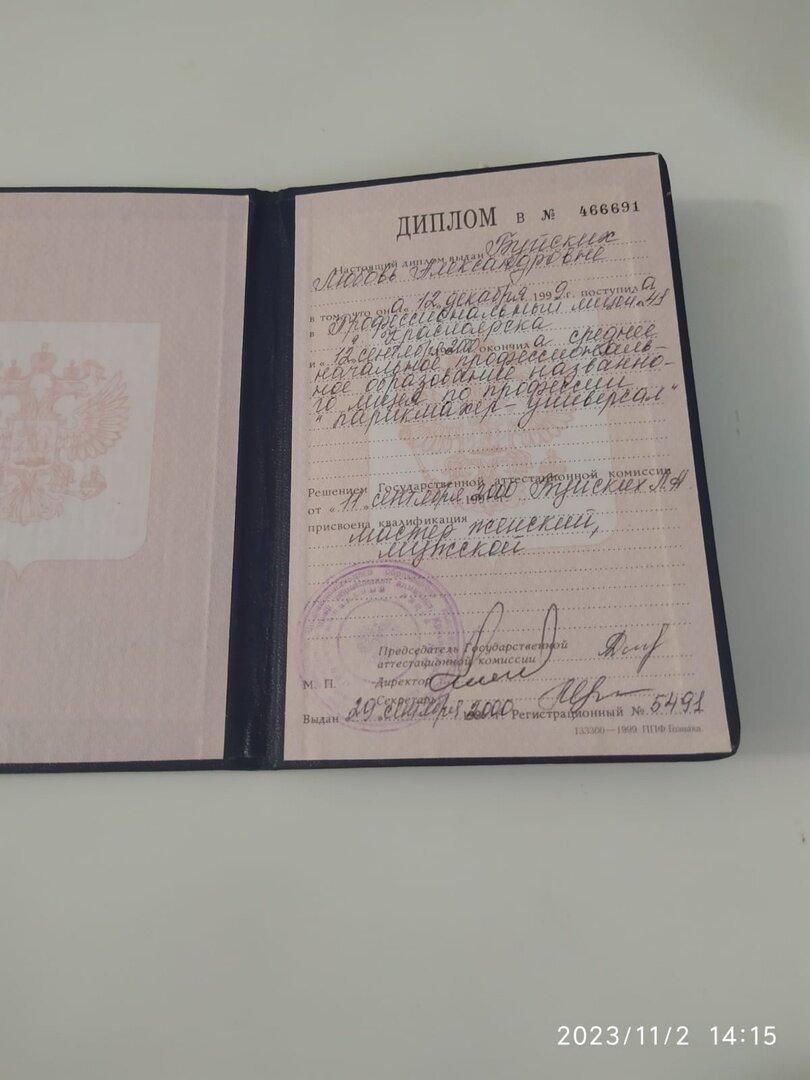 ДИПЛОМ В № 466691
Настоящий диплом выдан Буйских
Любовь Александровне
в том, что она 12 декабря 1999 г. поступила
в Профессиональный лицей
г. Красноярска
и «12 сентября 2000 окончила среднее
начальное профессиональ-
ное образование названно-
го лицея по профессии
"парикмахер-универсал"
Решением Государственной аттестационной комиссии
от «11 сентября 2000 Буйских Л.А.
присвоена квалификация
мастер женский,
мужской
Председатель Государственной
аттестационной комиссии
М. П. Директор
Секретарь
Выдан 29 сентября 2000 Регистрационный № 5491
133300—1999. ППФ Гознака.
2023/11/2 14:15